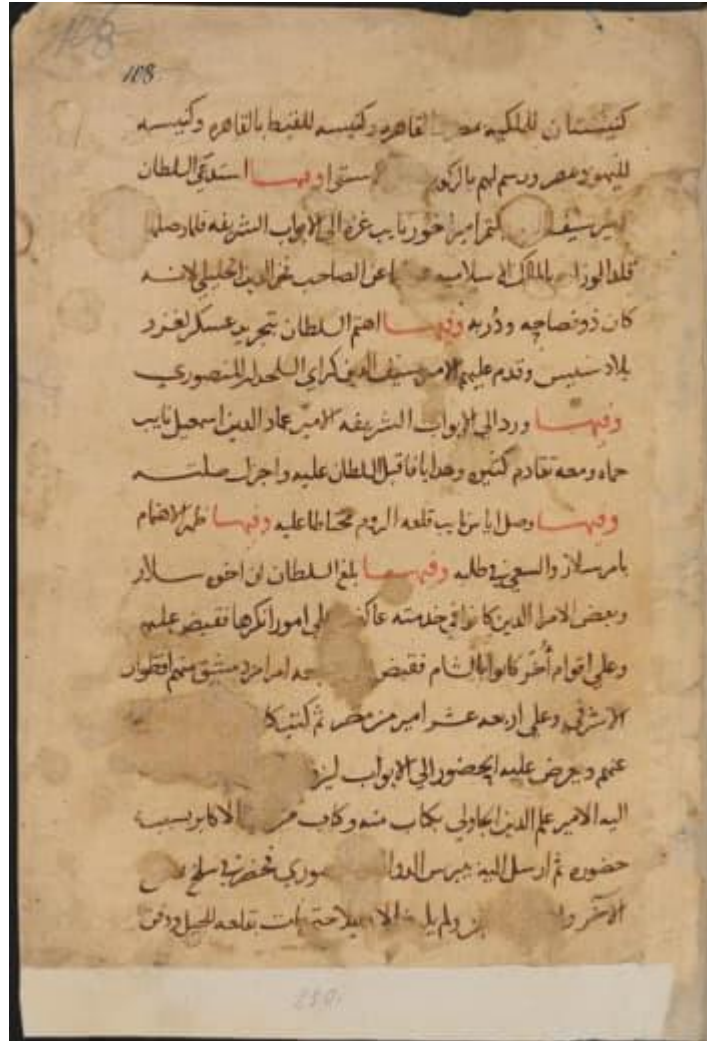 108
108
كنيستان للملكية القاهره وكنيسه للقبط بالقاهره وكنيسه
لليهود بمصر ورسم لهم بالركوب استوا وفيها استدعى السلطان
الامير سيف بكتمر امير اخور نايب غزه الى الابواب الشريفه فلما وصل
قلد الوزا بالممالك الاسلاميه عن الصاحب فخر الدين الخليلي لانه
كان ذو فصاحه ودربه وفيها اهتم السلطان بتجريد عسكر لغزو
بلاد سيس وقدم عليهم الامير سيف الدين كراي السلحدار المنصوري
وفيها ورد الى الابواب الشريفه الامير عماد الدين اسمعيل نايب
حماه ومعه تقادم كثيره وهدايا فاقبل السلطان عليه واجزل صلته
وفيها وصل اياس نايب قلعه الروم محتاطا عليه وفيها ظهر الاهتمام
بامر سلار والسعي في طلبه وفيها بلغ السلطان ان اخوه سلار
وبعض الامرا الدين كانوا في خدمته على امور انكرها فقبض عليهم
وعلى اقوام أخر كانوا بالشام فقبض امرا دمشق منهم اقطوان
الاشرفي وعلى اربعه عشر امير من مصر ثم كتب
عنهم ويعرض عليه الحضور الى الابواب
اليه الامير علم الدين الجاولي بكتاب منه وكتاب من الاكابر بسبب
حضوره ثم ارسل اليه بيبرس الدوا صوري فحضر في سلخ
الآخر ولم حتى مات بقلعه الجبل ودفن